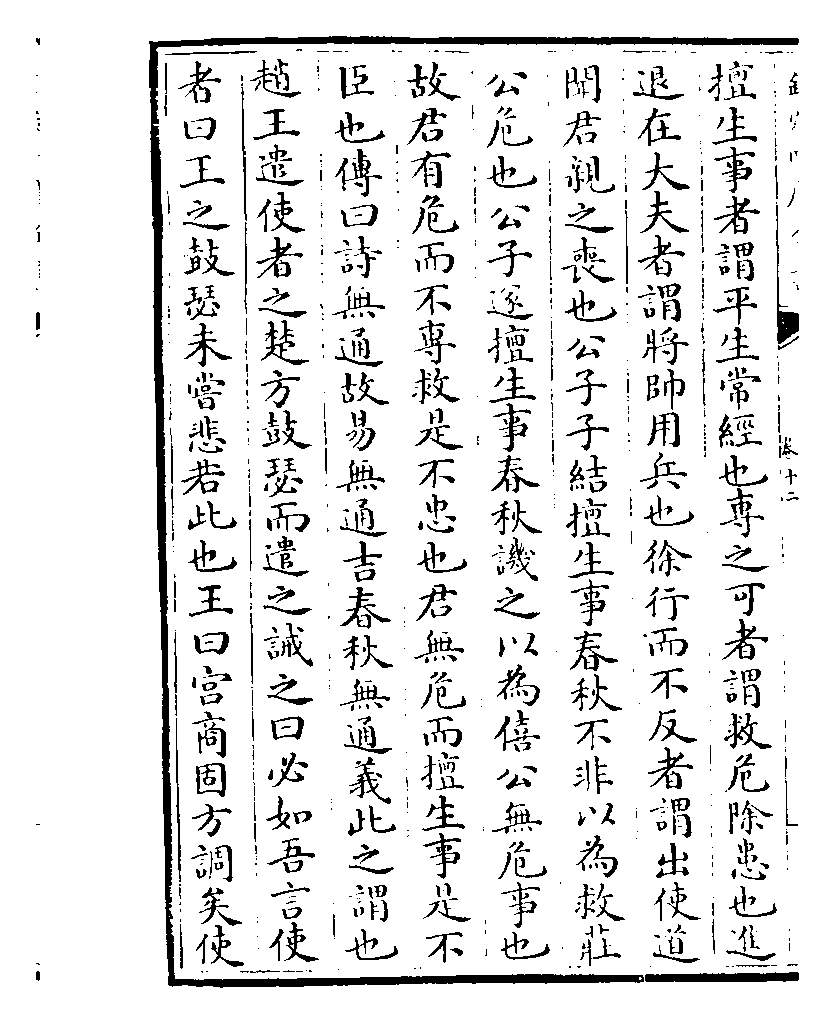 擅生事者謂平生常經也專之可者謂救危除患也進
退在大夫者謂將帥用兵也徐行而不反者謂出使道
聞君親之喪也公子子結擅生事春秋不非以為救莊
公危也公子遂擅生事春秋譏之以為僖公無危事也
故君有危而不専救是不忠也君無危而擅生事是不
臣也傳曰詩無通故易無通吉春秋無通義此之謂也
趙王遣使者之楚方鼓瑟而遣之誡之曰必如吾言使
者曰王之鼓瑟未嘗悲若此也王曰宫商固方調矣使
卷十二